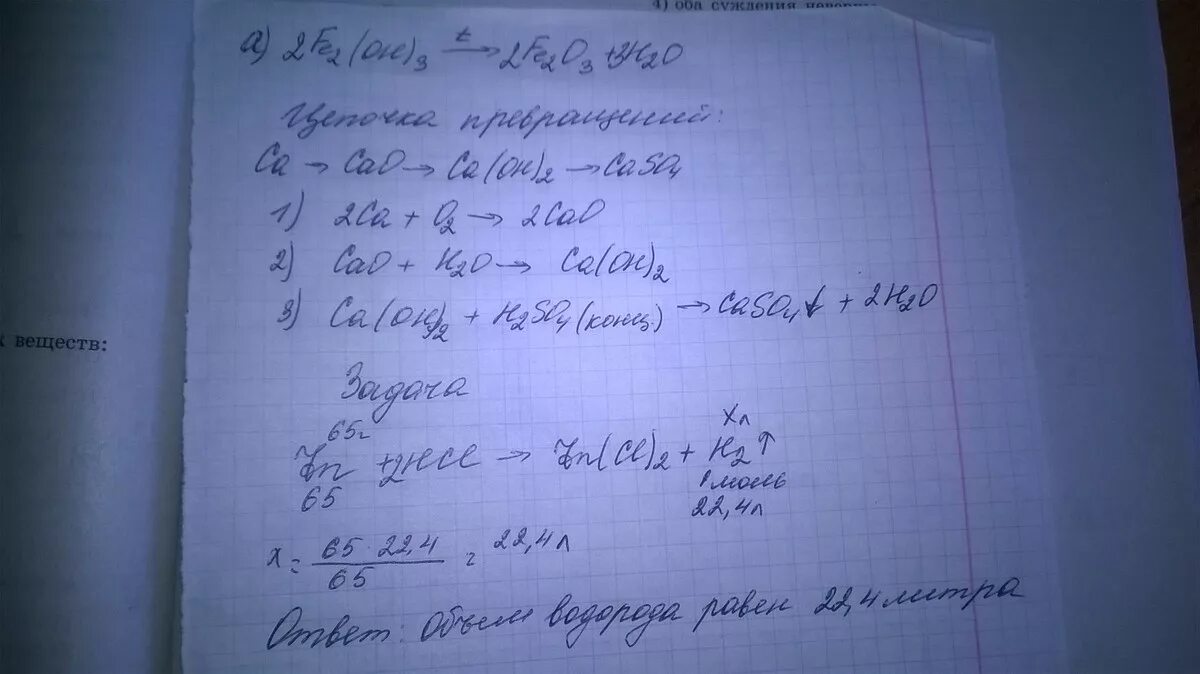 4) оба суждения неверны
а) 2Fe₂(OH)₃ →t 2Fe₂O₃ + 3H₂O
Цепочка превращений:
Ca → CaO → Ca(OH)₂ → CaSO₄
1) 2Ca + O₂ → 2CaO
2) CaO + H₂O → Ca(OH)₂
3) Ca(OH)₂ + H₂SO₄(конц.) → CaSO₄↓ + 2H₂O
к веществ:
Задача
65г Xл
Zn + 2HCl → Zn(Cl)₂ + H₂↑
65 1 моль
22,4л
x = 65·22,4 / 65 = 22,4л
Ответ: Объем водорода равен 22,4 литра